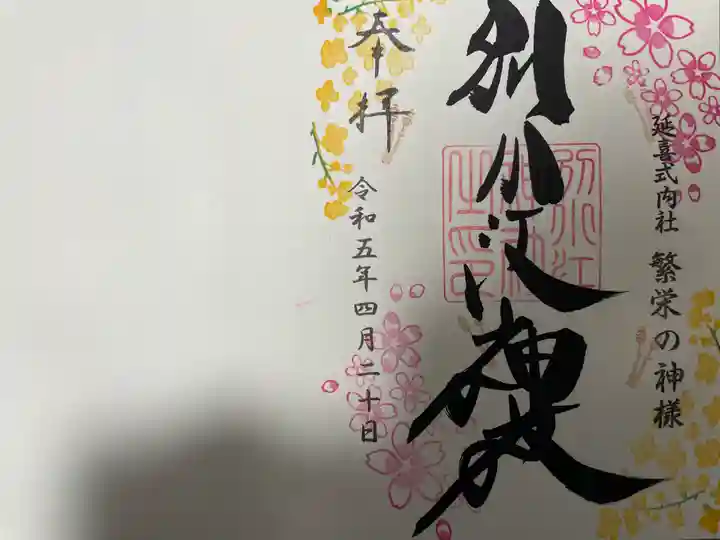 延喜式内社 繁栄の神様
別小江神社
奉拝
令和五年四月二十日